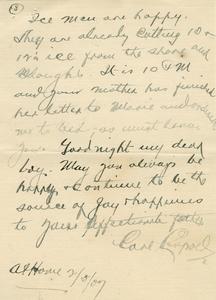 (3)
Ice men are happy.
They are already cutting 10 or
12 in ice from the shore and
thought. It is 10 P.M.
and your mother has finished
her letter to Marie and orders
me to bed - so must leave
you. Good night my dear
boy. May you always be
happy, & continue to be the
source of joy & happiness
to your affectionate father
Carl
At Home 2/3/07